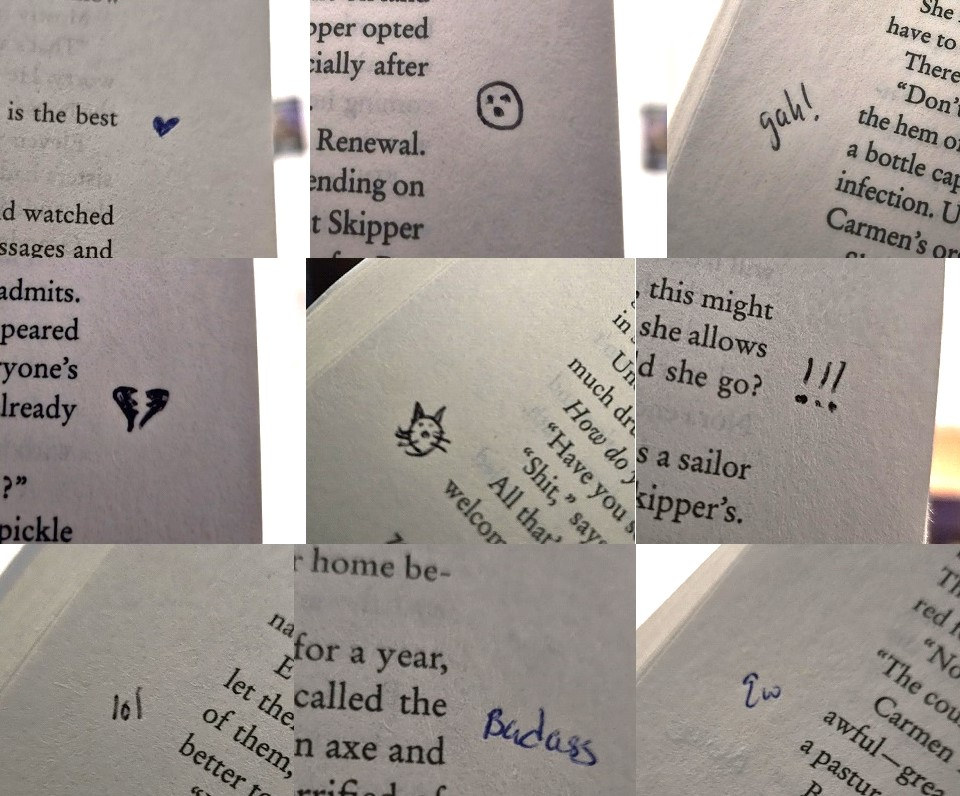 is the best
d watched
ssages and
pper opted
cially after
Renewal.
ending on
t Skipper
She
have to
There
gah!
"Don't
the hem o
a bottle cap
infection. U
Carmen's or
admits.
peared
yone's
lready
?"
pickle
in
Un
much dru
How do y
"Have you s
"Shit," says
All that'
welcom
, this might
she allows
d she go?
!!!
s a sailor
kipper's.
na
E
let the
lol
of them,
better to
r home be-
for a year,
called the
n axe and
Badass
rrified of
Th
red f
"No
"The cou
Ew
Carmen
awful—grea
a pastur
B